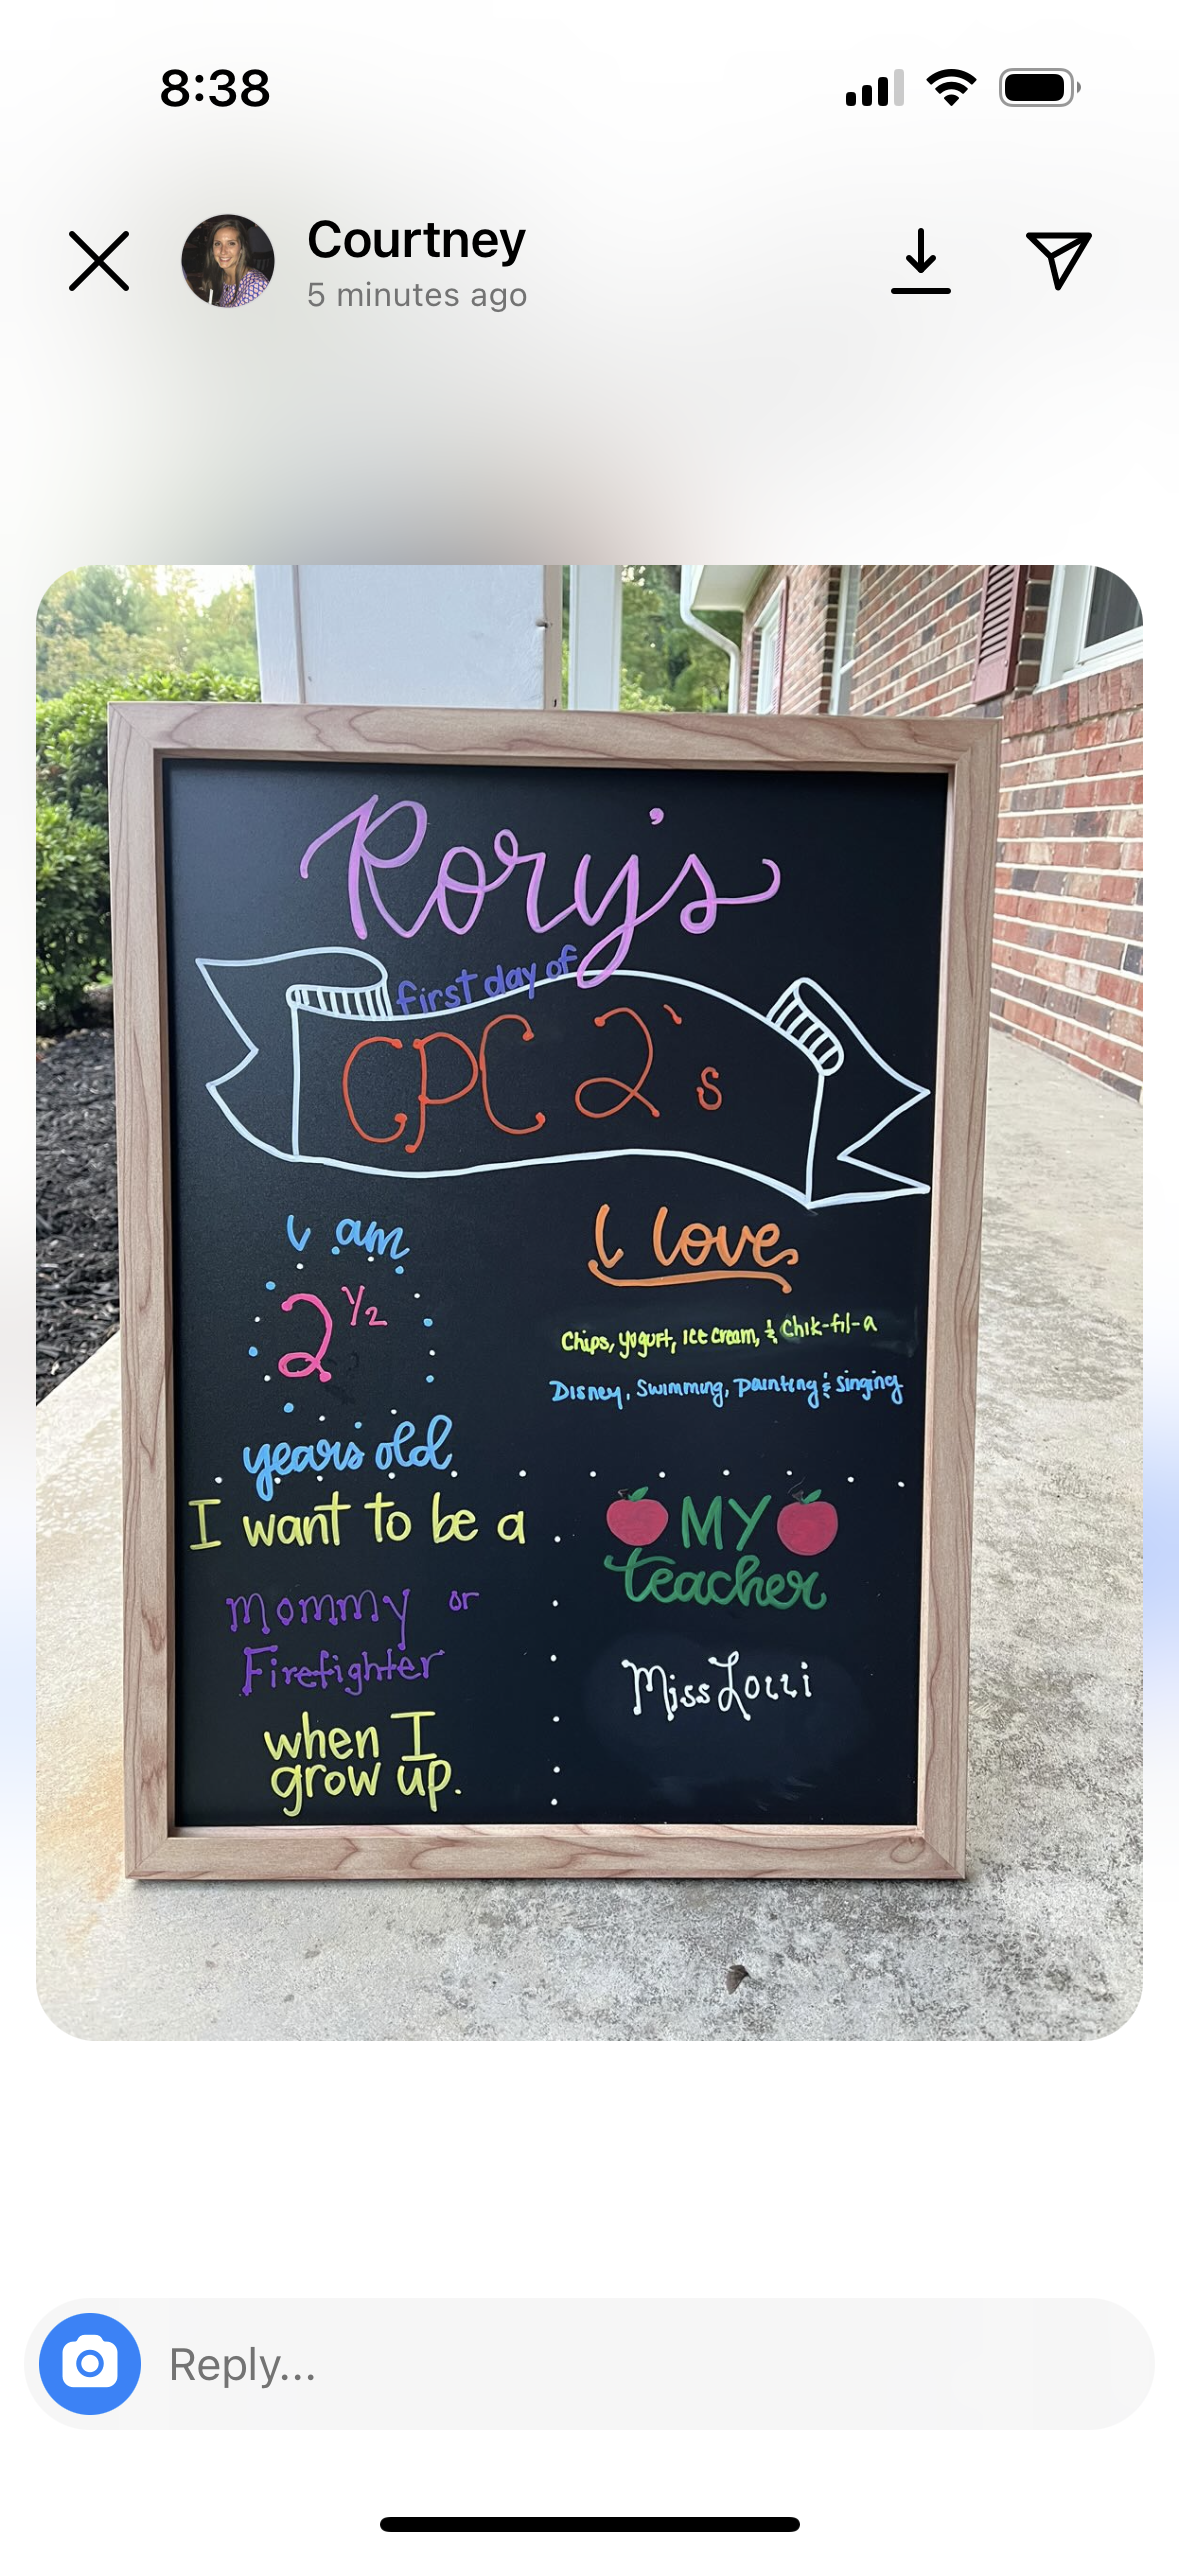 8:38
Courtney
5 minutes ago
Rory's
first day of
CPC 2's
I am
2 1/2
years old
I love
Chips, yogurt, ice cream, & Chik-fil-a
Disney, Swimming, painting & singing
I want to be a
mommy or
Firefighter
when I
grow up.
MY
teacher
Miss Lorri
Reply...